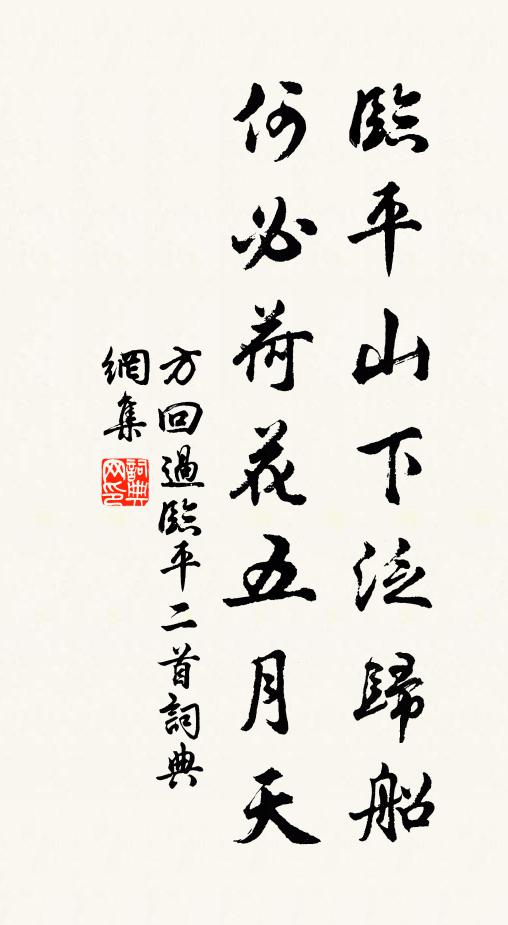 臨平山下泛歸船
何必荷花五月天
方回過臨平二首詞典
網集
詞典网印